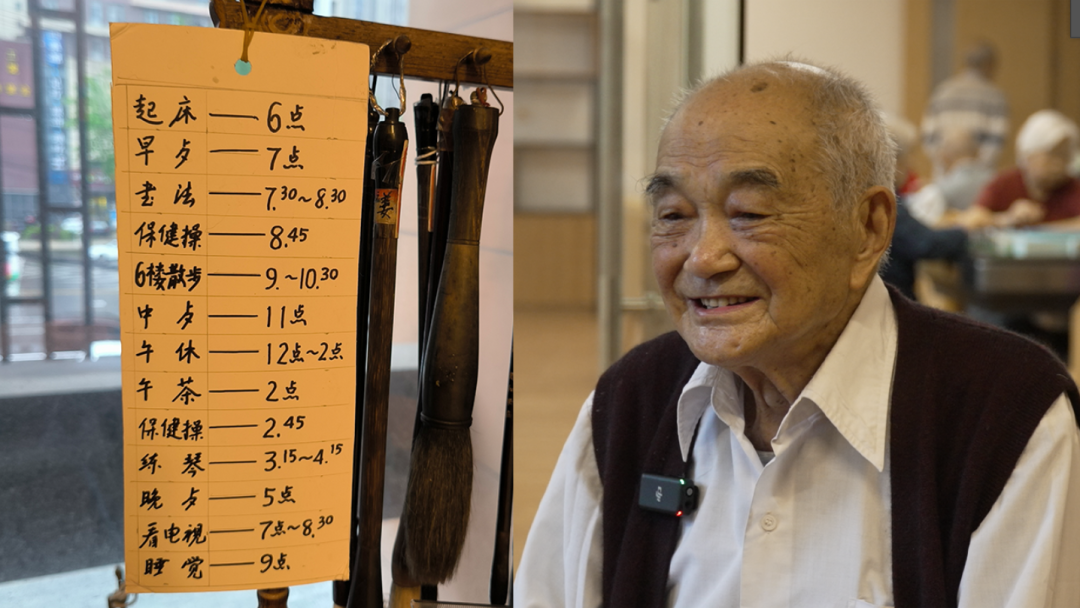 起床——6点
早歺——7点
书法——7.30~8.30
保健操——8.45
6楼散步——9.~10.30
中歺——11点
午休——12点~2点
午茶——2点
保健操——2.45
练琴——3.15~4.15
晚歺——5点
看电视——7点~8.30
睡觉——9点